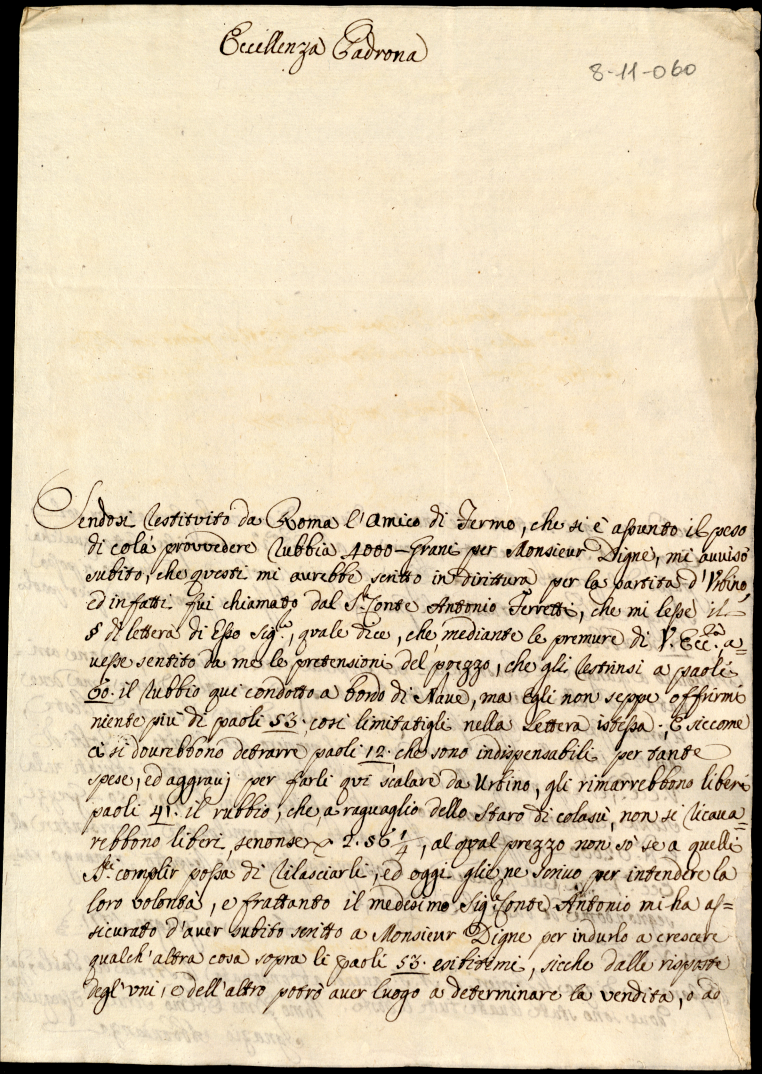 Eccellenza Padrona
8-11-060
Sendosi restituito da Roma l'Amico di Fermo, che si è assunto il peso
di colà provvedere rubbia 4000 - Grani per Monsieur Digne, mi avvisò
subito, che questi mi avrebbe scritto in dirittura per la partita d'Urbino,
ed infatti fui chiamato dal Sr. Conte Antonio Ferretti, che mi lesse il
§ di lettera di Esso Sigre, quale dice, che mediante le premure di V. Eccza, a=
vesse sentito da me le pretensioni del prezzo, che gli restrinsi a paoli
60. il rubbio qui condotto a bordo di Nave, ma egli non seppe offrirmi
niente più di paoli 53. cosi limitatigli nella Lettera istessa. E siccome
ci si dovrebbono detrarre paoli 12. che sono indispensabili per tante
spese, ed aggravj per farli qui scalare da Urbino, gli rimarrebbono liberi
paoli 41. il rubbio, che a raguaglio dello Staro di colasù, non si ricava=
rebbono liberi, senonse 2.56 1/4, al qual prezzo non sò se a quelli
Sri. complir possa di rilasciarli, ed oggi gli ne scrivo per intendere la
loro volontà, e frattanto il medesimo Sigr. Conte Antonio mi ha as=
sicurato d'aver subito scritto a Monsieur Digne per indurlo a crescere
qualch'altra cosa sopra li paoli 53. esibitimi, sicche dalle risposte
degl'uni, e dell'altro potrò aver luogo a determinare la vendita, o ad